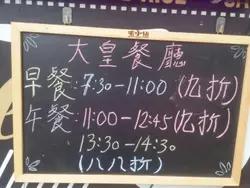 大皇餐廳
早餐:7:30-11:00(九折)
午餐:11:00-12:45(九折)
13:30-14:30
(八八折)